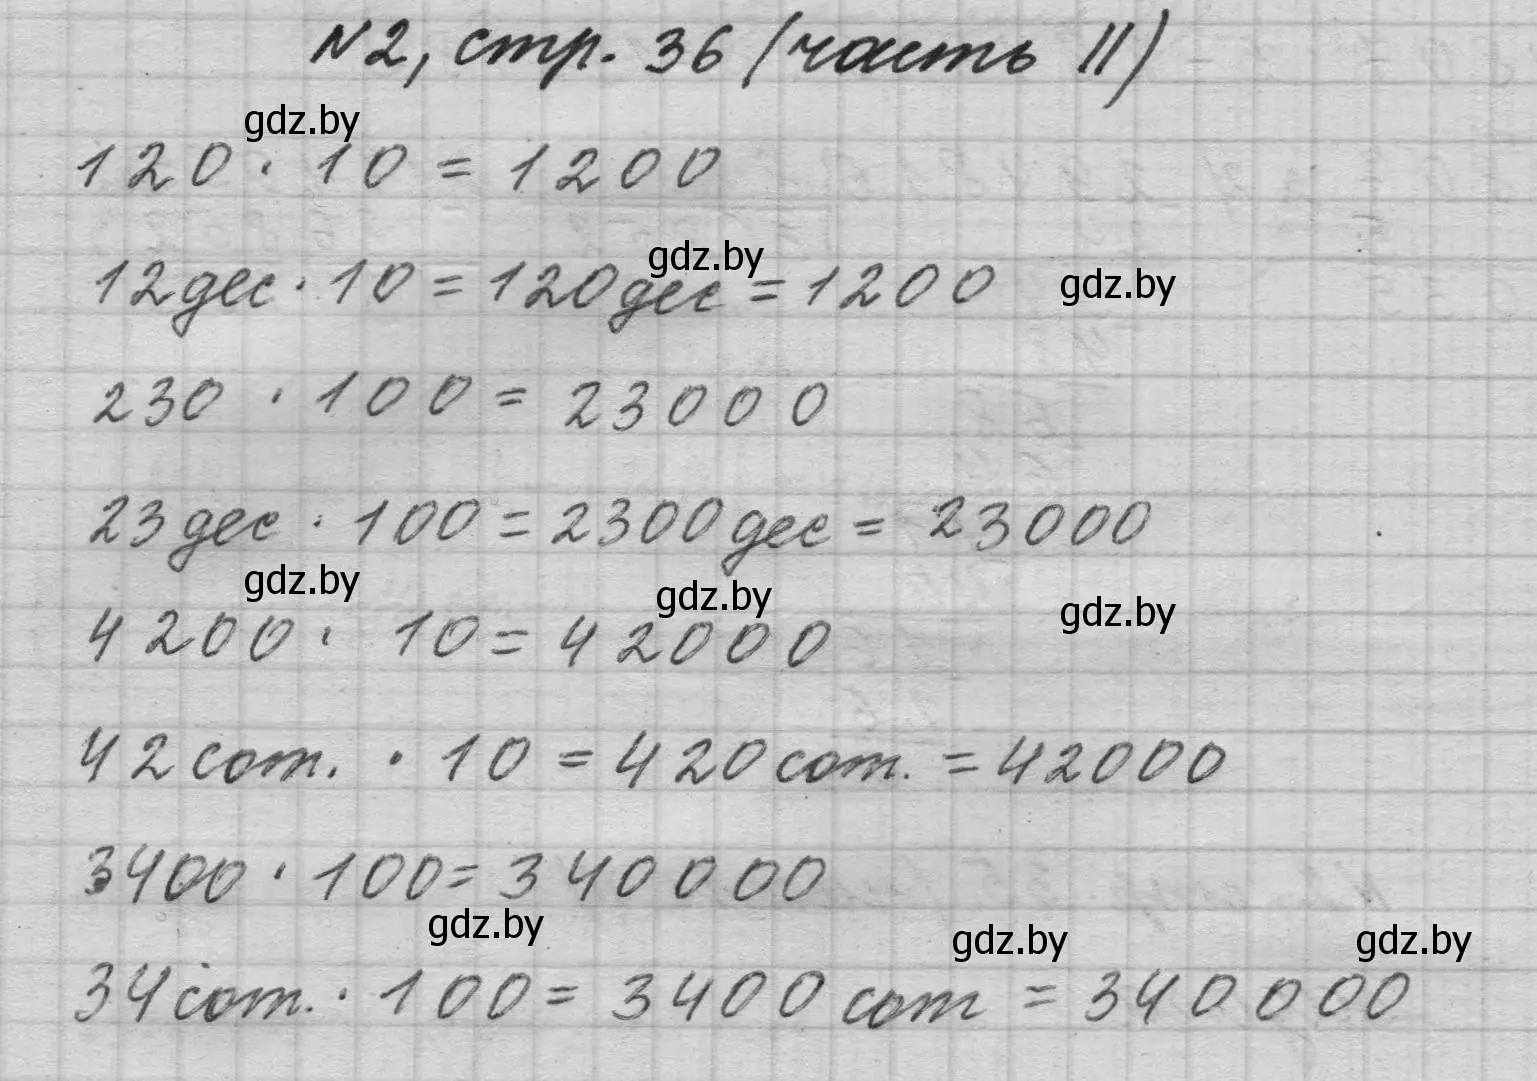 N2, стр. 36 (часть II)
gdz.by
120 · 10 = 1200
gdz.by
12дес · 10 = 120дес = 1200
gdz.by
230 · 100 = 23000
23дес · 100 = 2300дес = 23000
gdz.by
gdz.by
gdz.by
4200 · 10 = 42000
42сот. · 10 = 420сот. = 42000
3400 · 100 = 340000
gdz.by
gdz.by
gdz.by
34сот. · 100 = 3400 сот = 340000